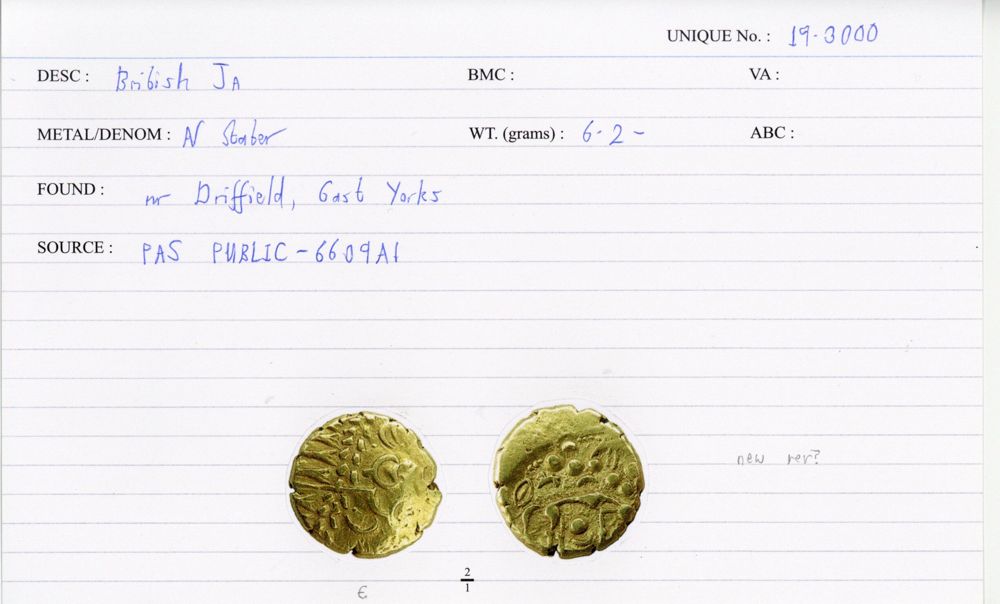 UNIQUE No. : 19-3000
DESC : British JA BMC : VA :
METAL/DENOM : AV Stater WT. (grams) : 6.2- ABC :
FOUND : nr Driffield, East Yorks
SOURCE : PAS PUBLIC-6609A1
new rev?
2
1
€